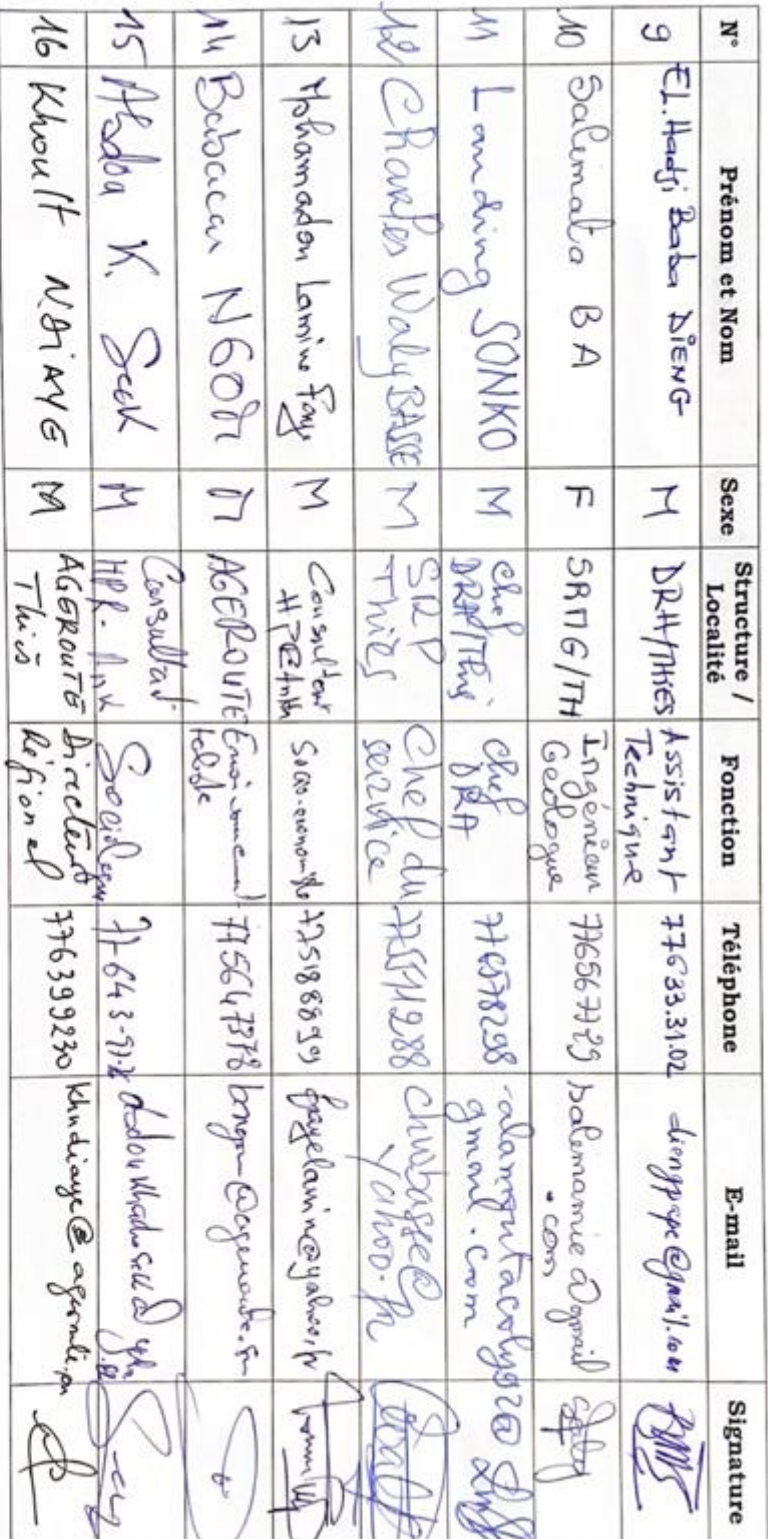 N° Prénom et Nom Sexe Structure / Localité Fonction Téléphone E-mail Signature
9 EL.Hadji Baba DiENG M DRH/THIES Assistant Technique 77633.31.02 diengpape@gmail.com
10 Salimata BA F SRMG/TH Ingénieur Géologue salemamie@gmail.com
11 Landing SONKO M Chef DRA/Thiès Chef DRA 776578298 gmail.com
12 Charles Waly BASSE M SRP Thiès Chef du service 775511288 chwbasse@yahoo.fr
13 Mohamadou Lamine Faye M Consultant Socio-économiste fayelamin@yahoo.fr
14 Babacar NGOM M AGEROUTE 775647378
15 K. Seck M Consultant Sociologue
16 Khoult NDIAYE M AGEROUTE Thiès Directeur Régional 776399230 khndiaye@ageroute.sn